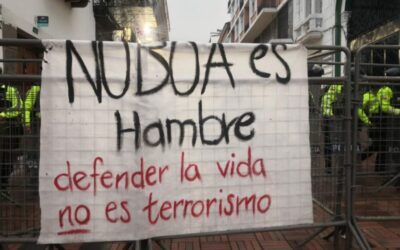 NUBUA es
Hambre
defender la vida
no es terrorismo